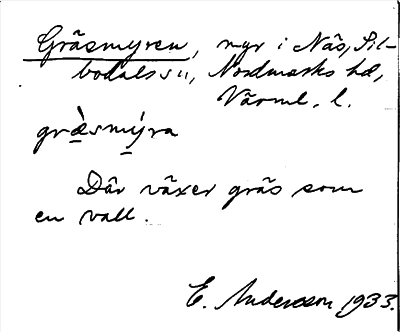 Gräsmyren, myr i Näs, Sil-
bodals sn, Nordmarks hd,
Värml. l.
græ̀smýra
Där växer gräs som
en vall.
E. Andersson 1933.